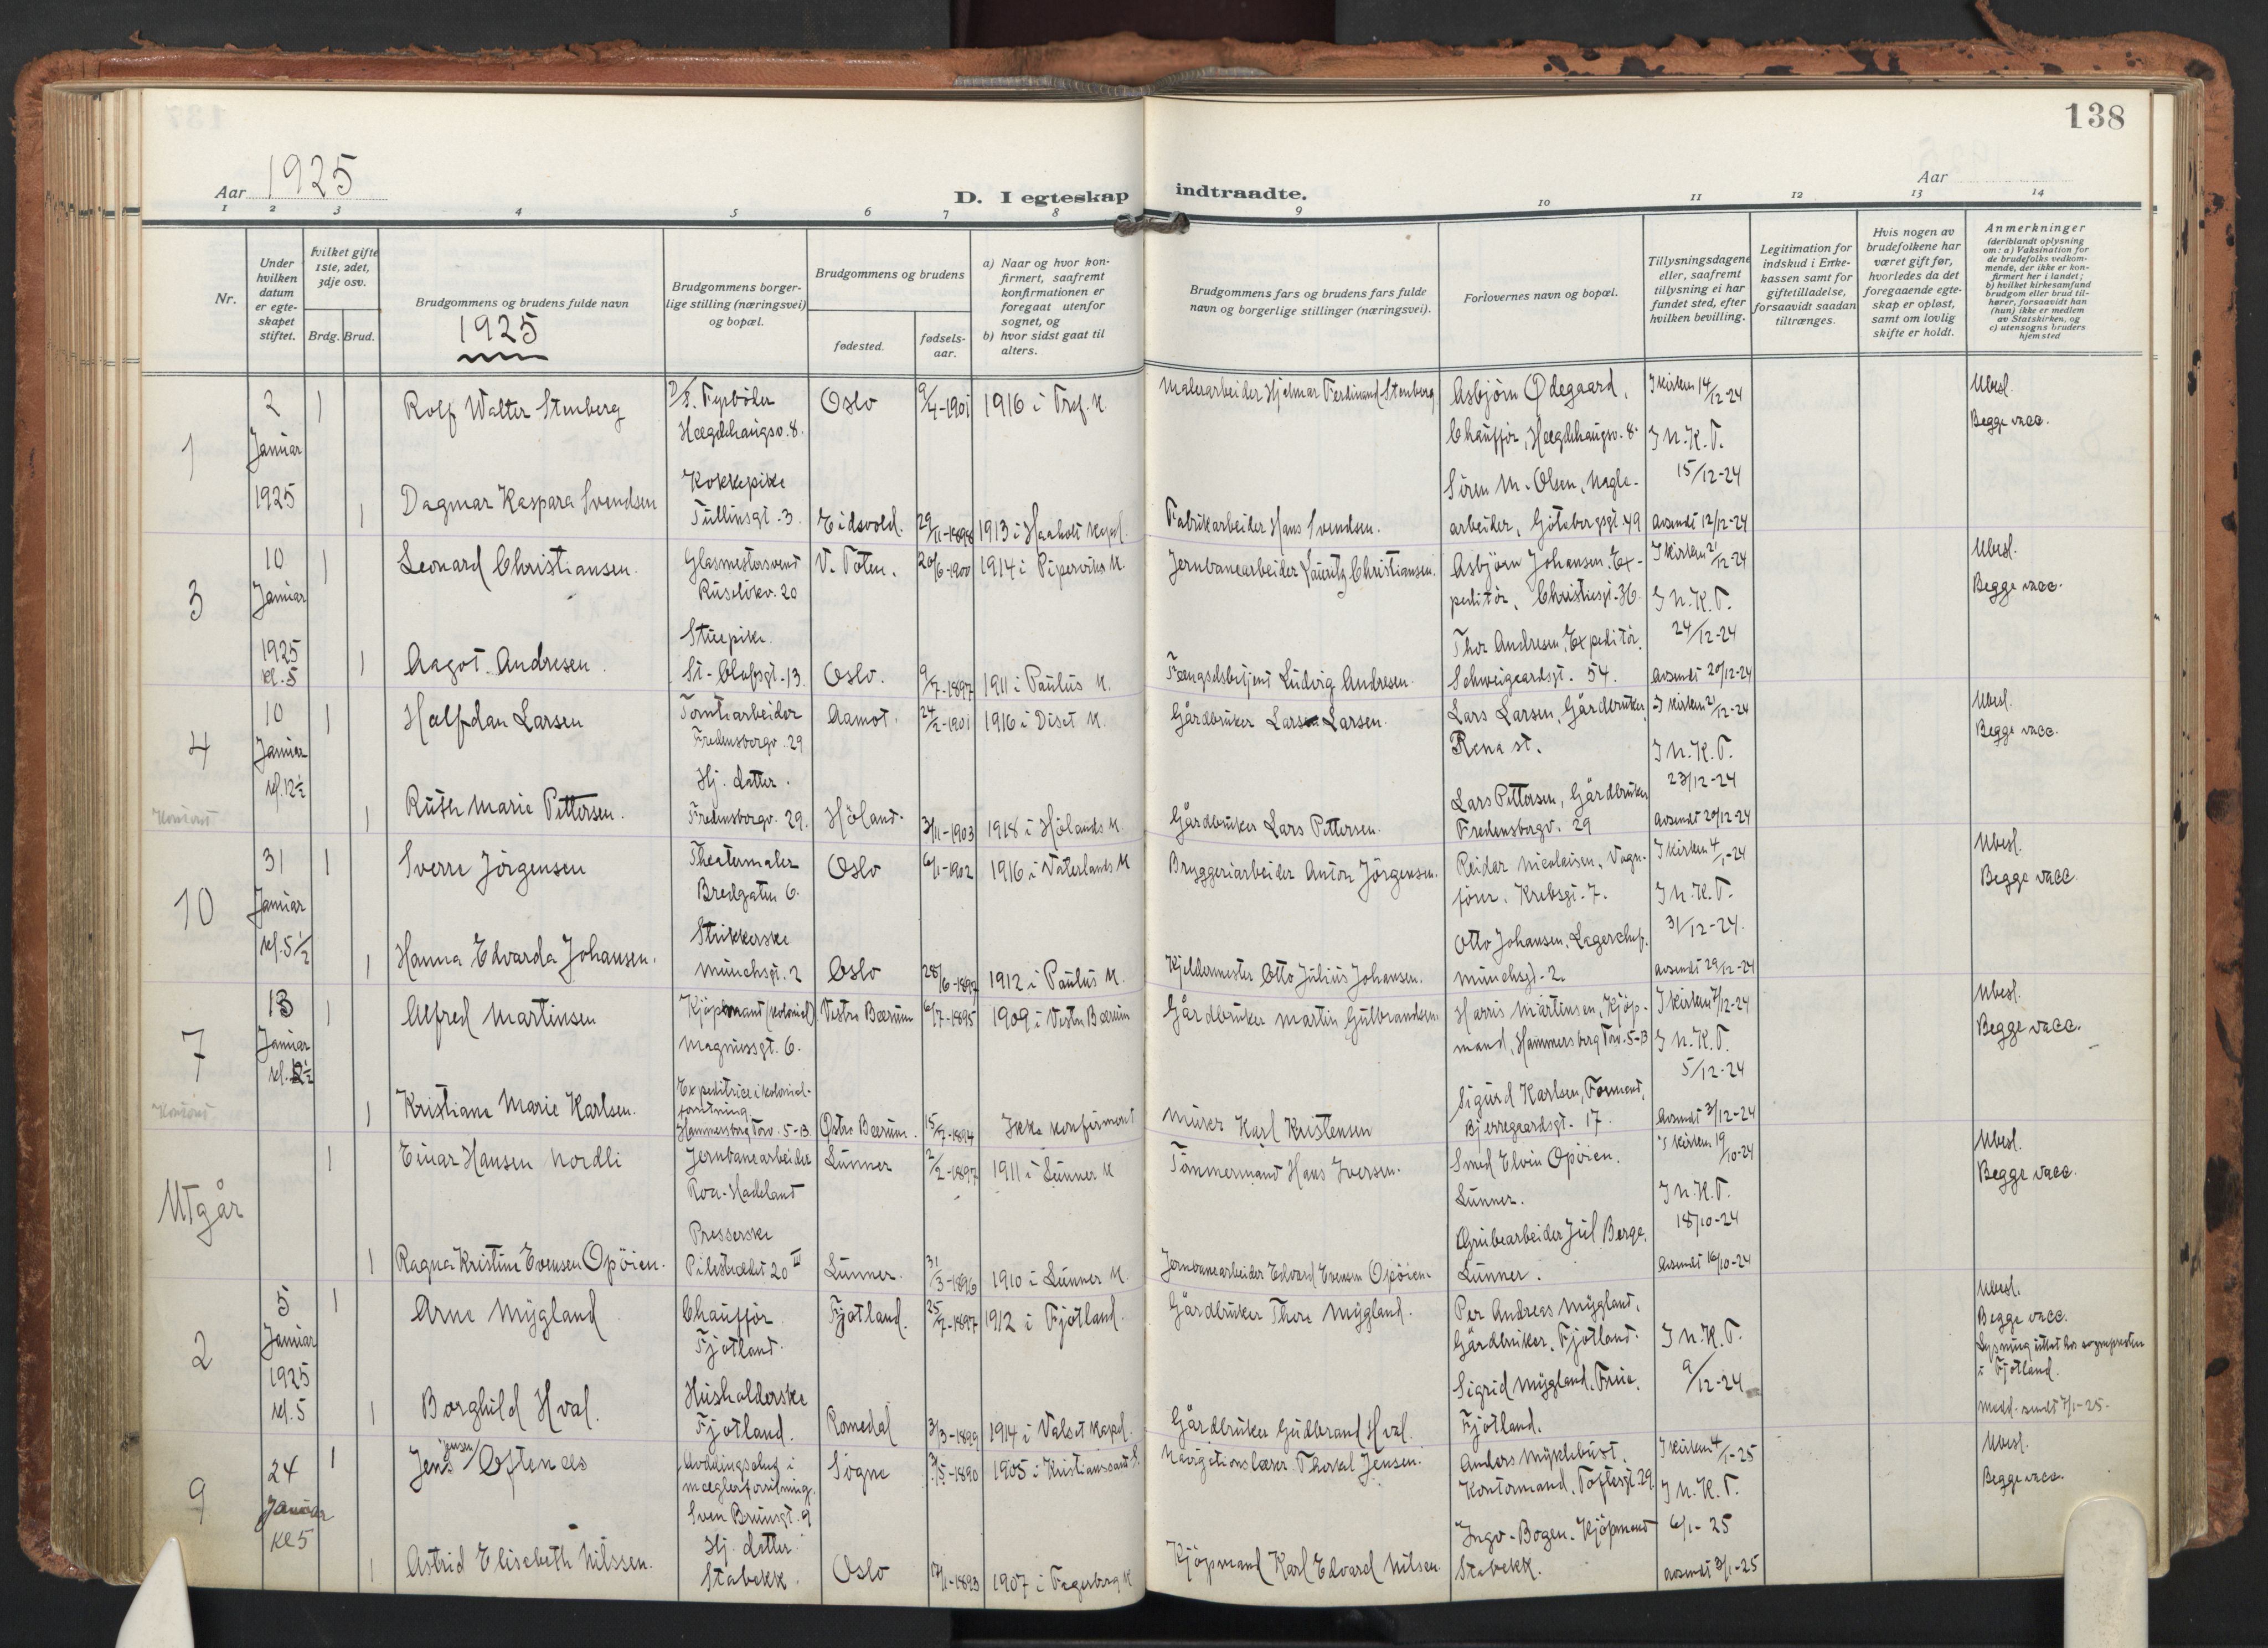 138
Aar 1925
D. I egteskap indtraadte.
Aar
1 2 3 4 5 6 7 8 9 10 11 12 13 14
Nr.
Under hvilken datum er egteskapet stiftet.
Hvilket gifte 1ste, 2det, 3dje osv.
Brdg. Brud.
Brudgommens og brudens fulde navn
1925
Brudgommens borgerlige stilling (næringsvei) og bopæl.
Brudgommens og brudens
fødested.
fødselsaar.
a) Naar og hvor konfirmert, saafremt konfirmationen er foregaat utenfor sognet, og
b) hvor sidst gaat til alters.
Brudgommens fars og brudens fars fulde navn og borgerlige stillinger (næringsvei).
Forlovernes navn og bopæl.
Tillysningsdagene eller, saafremt tillysning ei har fundet sted, efter hvilken bevilling.
Legitimation for indskud i Enkekassen samt for giftetilladelse, forsaavidt saadan tiltrænges.
Hvis nogen av brudefolkene har været gift før, hvorledes da det foregaaende egteskap er opløst, samt om lovlig skifte er holdt.
Anmerkninger
(deriblandt oplysning om: a) Vaksination for de brudefolks vedkommende, der ikke er konfirmert her i landet; b) hvilket kirkesamfund brudgom eller brud tilhører, forsaavidt han (hun) ikke er medlem av Statskirken, og c) utensogns bruders hjemsted
1
2 Januar 1925
1 Rolf Walter Stenberg
Fyrböder Hægdehaugsv. 8.
Oslo 9/4-1901 1916 i Tref. K.
Malerarbeider Hjelmar Ferdinand Stenberg
Asbjörn Ödegaard, Chaufför, Hægdehaugsv. 8.
I kirken 14/12-24
I N.K.T. 15/12-24
Ubesl.
Begge vacc.
1 Dagmar Kaspara Svendsen
Kokkepike Tullinsgt. 3.
Eidsvold. 29/11-1898 1913 i Haaholt Kapel.
Fabrikarbeider Hans Svendsen.
Sören M. Olsen, Maglearbeider, Götebergsgt. 49
Avsendt 12/12-24
3
10 Januar 1925 kl. 5
1 Leonard Christiansen.
Glasmestersvend Ruselökv. 20
V. Toten. 20/6-1900 1914 i Piperviken K.
Jernbanearbeider Lauritz Christiansen.
Asbjörn Johansen, Expeditör, Christiesgt. 36.
I kirken 21/12-24
I N.K.T. 24/12-24
Ubesl.
Begge vacc.
1 Aagot Andresen.
Stuepike. St. Olafsgt. 13.
Oslo. 9/7-1897 1911 i Paulus K.
Fængselsbetjent Ludvig Andresen.
Thor Andresen, Expeditör, Schweigaardsgt. 54.
Avsendt 20/12-24
4
10 Januar kl. 12½
1 Halfdan Larsen
Tomtearbeider Fredensborgv. 29
Aamot. 24/2-1901 1916 i Diset K.
Gårdbruker Lars Larsen.
Lars Larsen, Gårdbruker, Rena st.
I kirken 21/12-24
I N.K.T. 23/12-24
Ubesl.
Begge vacc.
Kontant
1 Ruth Marie Pettersen.
Hj. datter. Fredensborgv. 29.
Höland. 3/11-1903 1918 i Hölands K.
Gårdbruker Lars Pettersen.
Lars Pettersen, Gårdbruker Fredensborgv. 29
Avsendt 20/12-24
10
31 Januar kl. 5½
1 Sverre Jörgensen
Theatermaler Bredgaten 6.
Oslo 6/1-1902 1916 i Vaterlands K
Bryggeriarbeider Anton Jörgensen.
Reidar Nicolaisen, Vognförer. Krebsgt. 7.
I kirken 4/1-24
I N.K.T. 31/12-24.
Ubesl.
Begge vacc.
1 Hanna Edvarda Johansen.
Strikkerske Munchsgt. 2
Oslo 28/6-1897 1912 i Paulus K.
Kjeldermester Otto Julius Johansen.
Otto Johansen, Lagerchef, Munchsgt. 2.
Avsendt 29/12-24
7
13 Januar
1 Alfred Martinsen
Kjöpmand (kolonial) Magnussgt. 6.
Vestre Bærum 6/7-1895 1909 i Vestre Bærum
Gårdbruker Martin Gulbrandsen
Harris Martinsen, Kjöpmand, Hammersborg Torv. 5-B
I kirken 7/12-24
I N.K.T. 5/12-24
Ubesl.
Begge vacc.
Kontant
1 Kristiane Marie Karlsen.
Expeditrice i kolonialforretning. Hammersborg Torv. 5-B.
Östre Bærum. 15/7-1894 Ikke konfirmert
Murer Karl Kristensen
Sigurd Karlsen, Formand, Bjerregaardsgt. 17.
Avsendt 3/12-24
Utgår
1 Einar Hansen Nordli
Jernbanearbeider Roa-Hadeland
Lunner 2/2-1897 1911 i Lunner K
Tömmermand Hans Iversen.
Smed Elvin Opöien. Lunner.
I kirken 19/10-24
I N.K.T. 18/10-24
Ubesl.
Begge vacc.
1 Ragna Kristine Evensen Opöien.
Presserske Pilestrædet 20 III
Lunner. 31/3-1896 1910 i Lunner K.
Jernbanearbeider Edvard Evensen Opöien.
Grubearbeider Jul Berge. Lunner.
Avsendt 16/10-24
2
5 Januar 1925 kl. 5
1 Arne Mygland
Chaufför. Fjotland.
Fjotland. 25/7-1897 1912 i Fjotland.
Gårdbruker Thore Mygland.
Per Andreas Mygland, Gårdbruker, Fjotland.
I N.K.T. 9/12-24
Ubesl.
Begge vacc.
Lysning uttat hos sognepresten i Fjotland.
Medd. sendt 7/1-25.
1 Borghild Hval.
Husholderske Fjotland.
Romedal 3/3-1899 1914 i Valset Kapel.
Gårdbruker Gudbrand Hval.
Sigrid Mygland, Frue, Fjotland.
9
24 Januar Kl 5
1 Jens Jensen Oftenæs
i mæglerforretning. Sven Bruunsgt. 9
Sögne 3/5-1890 1905 i Kristianssand S.
Navigationslærer Thorval Jensen.
Anders Myklebust. Kontormand, Toftesgt. 29.
I kirken 4/1-25
I N.K.T. 6/1-25
Ubesl.
Begge vacc.
1 Astrid Elisabeth Nilssen.
Hj. datter. Stabekk.
Oslo 17/1-1893 1907 i Fagerborg K
Kjöpmand Karl Edvard Nilsen.
Ingv. Bogen. Kjöpmand Stabekk.
Avsendt 3/1-25